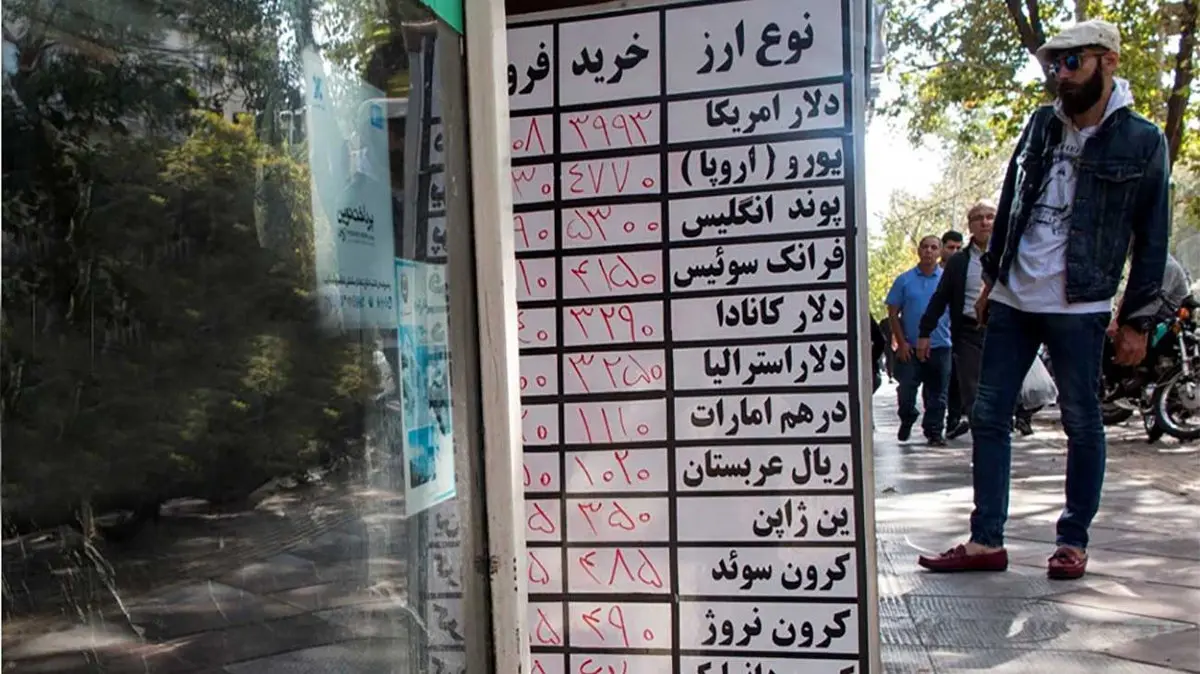 نوع ارز خرید فرو
دلار امریکا ۳۹۹۳ ۰۸
یورو (اروپا) ۴۷۷۰ ۳۰
پوند انگلیس ۵۳۰۰ ۹۰
فرانک سوئیس ۴۱۵۰ ۱۰
دلار کانادا ۳۲۹۰ ۴۰
دلار استرالیا ۳۲۵۰ ۰۰
درهم امارات ۱۱۱۰
ریال عربستان ۱۰۲۰
ین ژاپن ۳۵۰ ۵
کرون سوئد ۴۸۵ ۵
کرون نروژ ۴۹۰ ۵
پرداخت نوین